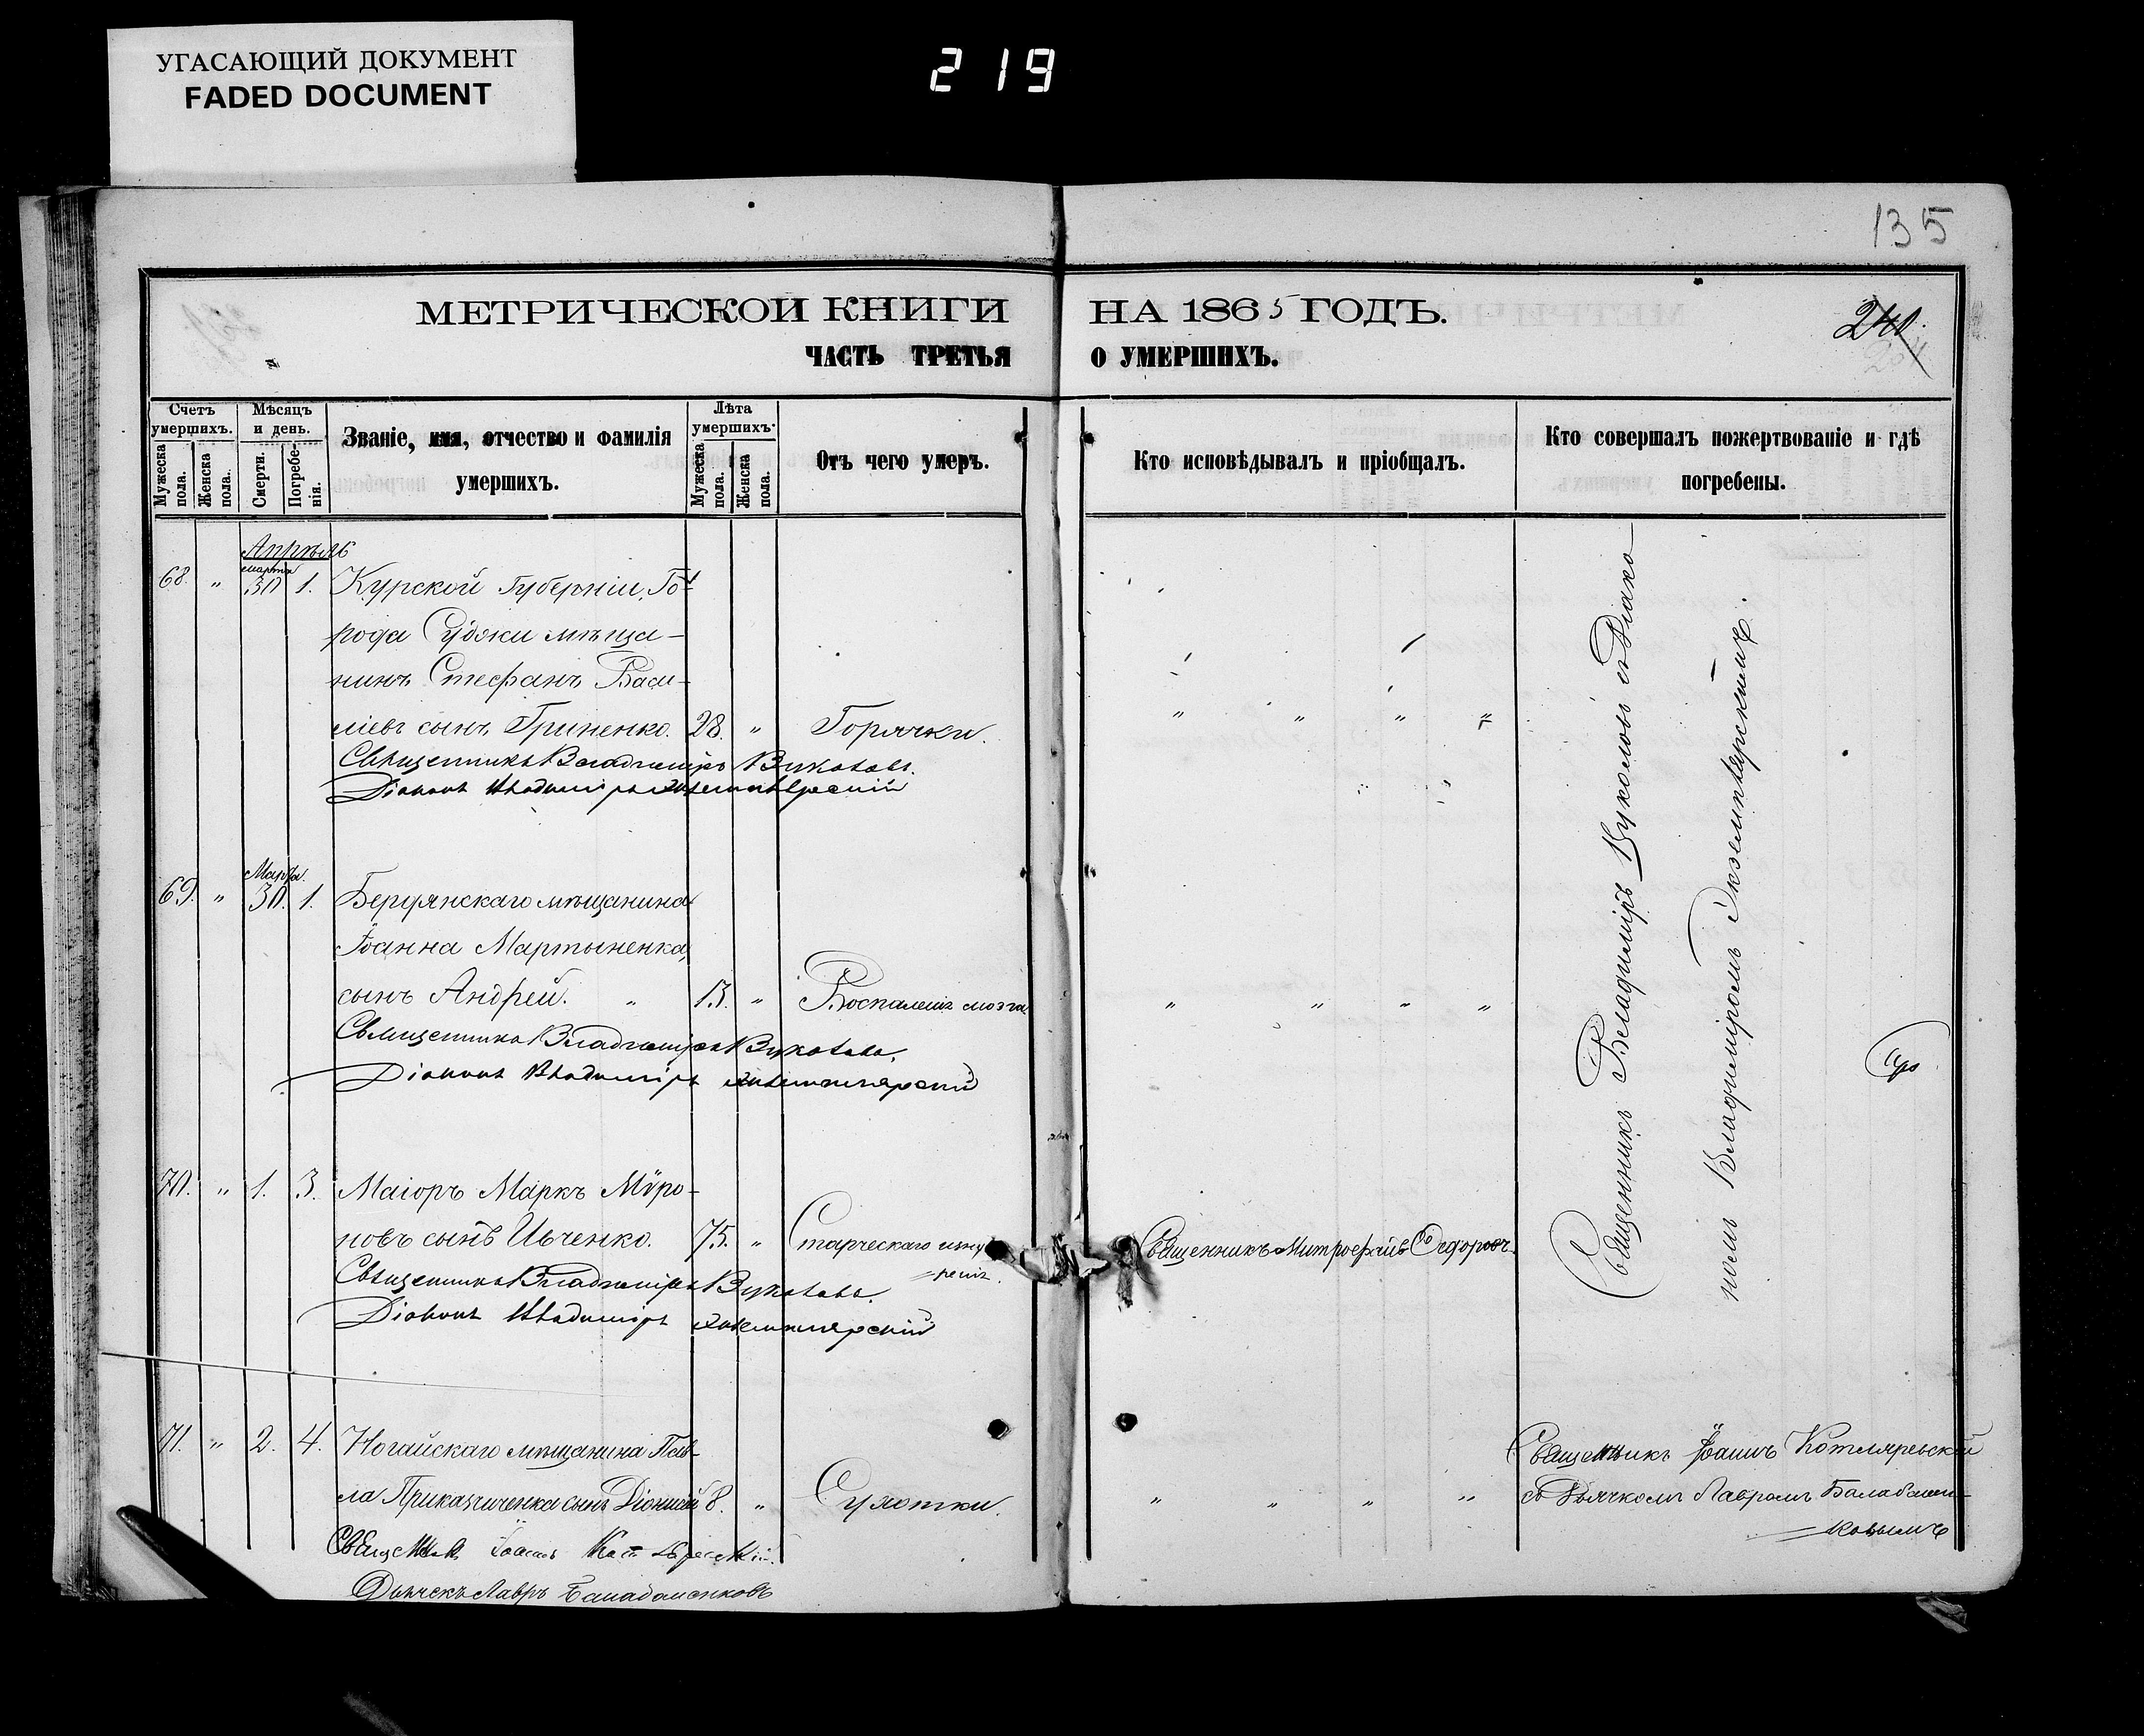 УГАСАЮЩИЙ ДОКУМЕНТ
FADED DOCUMENT
219
135
МЕТРИЧЕСКОЙ КНИГИ НА 1865 ГОДЪ.
240.
ЧАСТЬ ТРЕТЬЯ О УМЕРШИХЪ.
Счетъ умершихъ.
Мужеска пола.
Женска пола.
Мѣсяцъ и день.
Смерти.
Погребенія.
Званіе, имя, отчество и фамилія умершихъ.
Лѣта умершихъ.
Мужеска пола.
Женска пола.
Отъ чего умеръ.
Кто исповѣдывалъ и пріобщалъ.
Кто совершалъ пожертвованіе и гдѣ погребены.
Апрѣль
марта
68. " 30 1. Курской Губерніи, Го-
рода Суджи мѣща-
нинъ Стефанъ Васи-
ліевъ сынъ Гриненко. 28. " Горячки. " " " "
Священникъ Владиміръ Вуколовъ.
Діаконъ Владиміръ Экземплярскій
Марта.
69. " 30. 1. Бердянскаго мѣщанина
Іоанна Мартыненка,
сынъ Андрей. " 13. " Воспаленія мозга " " " "
Священникъ Владиміръ Вуколовъ.
Діаконъ Владиміръ Экземплярскій
70. " 1. 3. Маіоръ Маркъ Мѵро-
новъ сынъ Ивченко. 75. " Старческаго изну
=ренія. Священникъ Митрофанъ Сидоровъ
Священникъ Владиміръ Вуколовъ.
Діаконъ Владиміръ Экземплярскій
Священникъ Владиміръ Вуколовъ съ Діако
номъ Владиміромъ Экземплярскимъ.
71. " 2. 4. Ногайскаго мѣщанина Пав-
ла Приказчиченка сынъ Діонисій 8. " Сухотки. " " " "
Священникъ Іоаннъ Котляревскій
съ Дьячкомъ Лавромъ Балабанен-
=ковымъ
Священникъ Іоаннъ Котляревскій.
Дьячекъ Лавръ Балабаненковъ